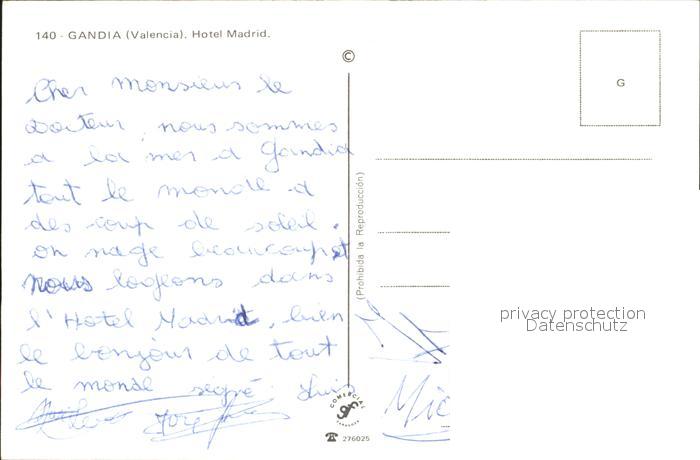 140 - GANDIA (Valencia). Hotel Madrid.
©
G
Cher monsieur le
docteur, nous sommes
a la mer a Gandia
tout le monde a
des coup de soleil.
on nage beaucoup et
nous logeons dans
l'Hotel Madrid, bien
le bonjour de tout
le monde signé Luis
(Prohibida la Reproducción)
COMERCIAL
☎ 276025
Mic
privacy protection
Datenschutz